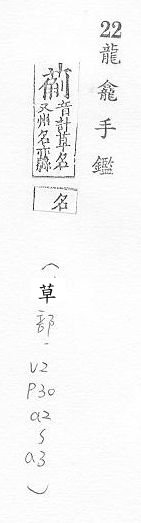 22 龍龕手鑑
音計草名
又州名亦縣
名
(草部-
V2
P30
a2
S
a3
)